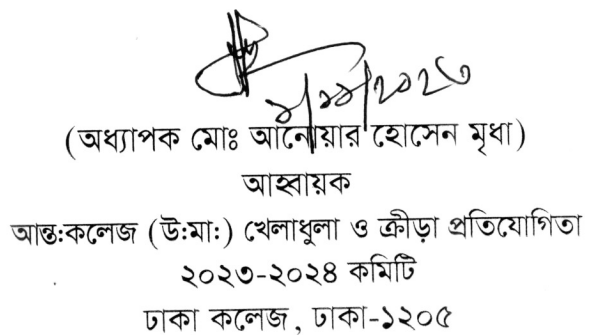 ৯/১১/২০২৩
(অধ্যাপক মোঃ আনোয়ার হোসেন মৃধা)
আহ্বায়ক
আন্ত:কলেজ (উ:মা:) খেলাধুলা ও ক্রীড়া প্রতিযোগিতা
২০২৩-২০২৪ কমিটি
ঢাকা কলেজ, ঢাকা-১২০৫